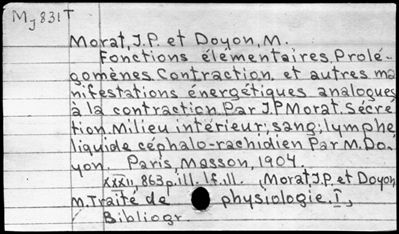 MJ831T
Morat, J.P. et Doyon, M.
Fonctions élémentaires. Prolé-
gomènes. Contraction. et autres ma
nifestations énergétiques analogues
à la contraction. Par J.P. Morat. Sécré
tion. Milieu intérieur; sang; lymphe
liquide céphalo-rachidien Par M. Do-
yon. Paris, Masson, 1904.
XXXII, 863 p. ill. 1f. ill. (Morat, J.P. et Doyon,
M. Traité de physiologie. I,
Bibliogr.